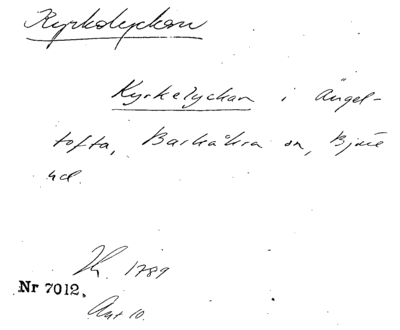 Kyrkolyckan
Kyrkelyckan i Ängel-
tofta, Barkåkra sn, Bjäre
hd.
1789
Nr 7012.
Akt 10.